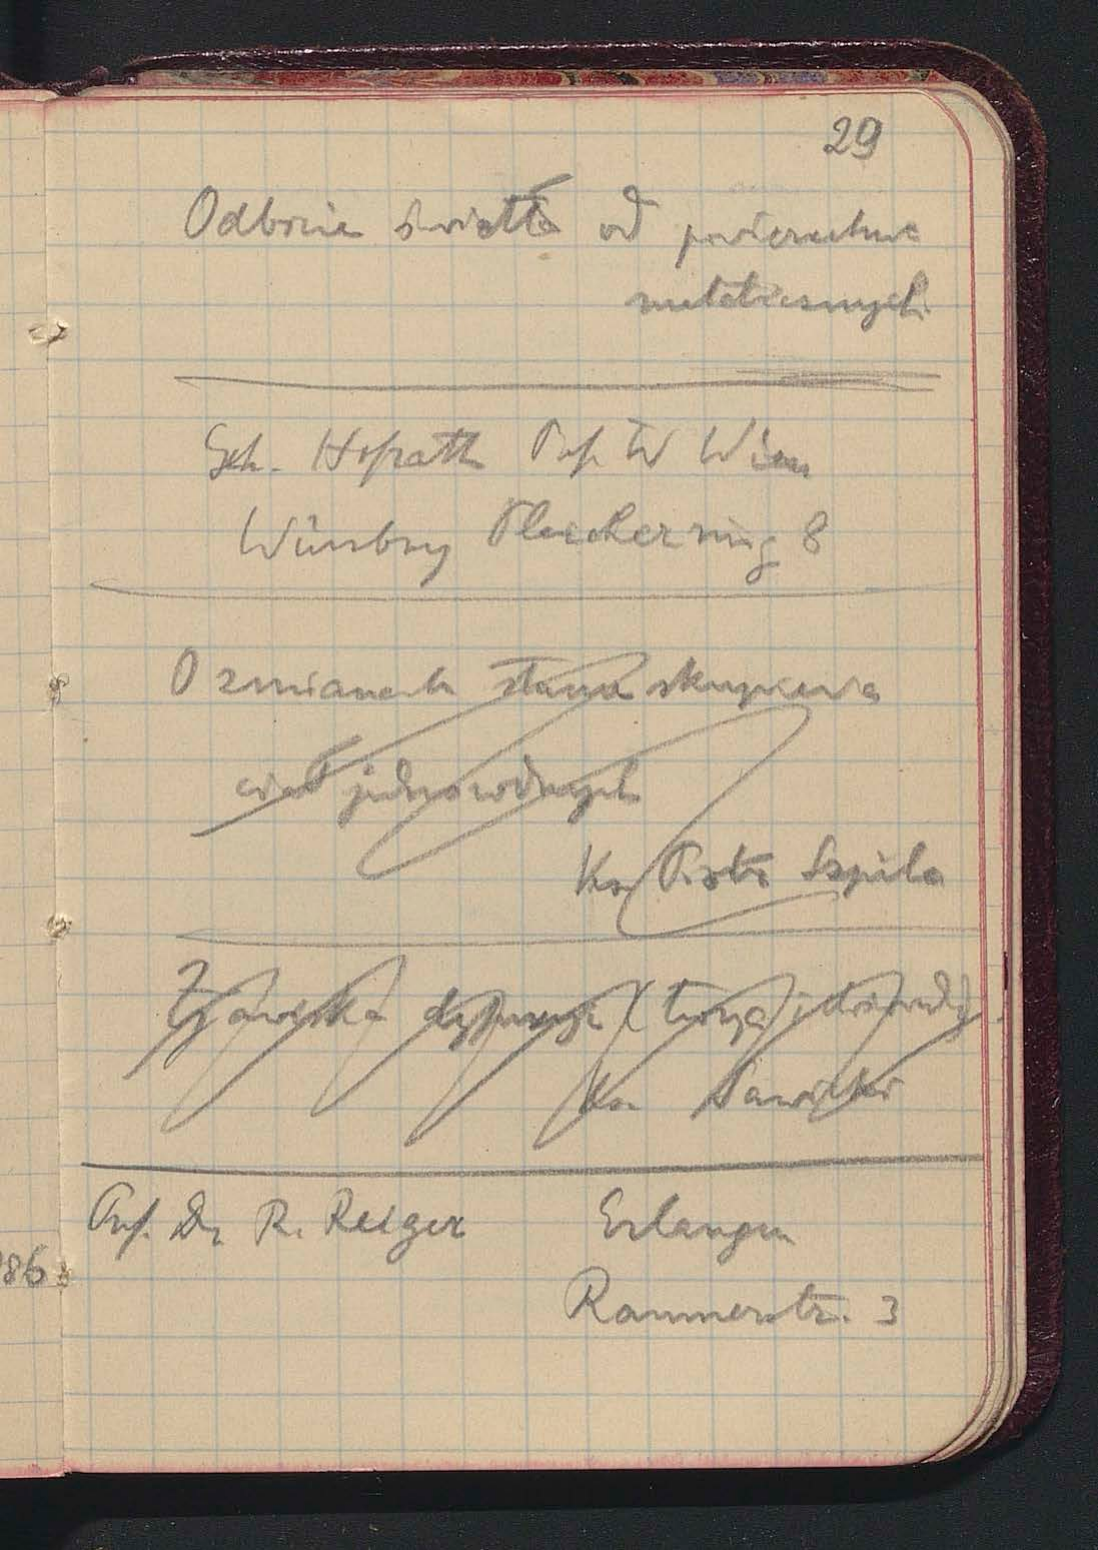 29
Odbicie światła od powierzchni
metalicznych.
Geh. Hofrath Prof. W Wien
Würzburg Pleicherring 8
O zmianach stanu skupienia
ciał jednorodnych
Ks. Piotr Szpila
Zjawiska dyspersyi (
Ks. Sawicki
Prof. Dr R. Reiger Erlangen
Raumerstr. 3
86